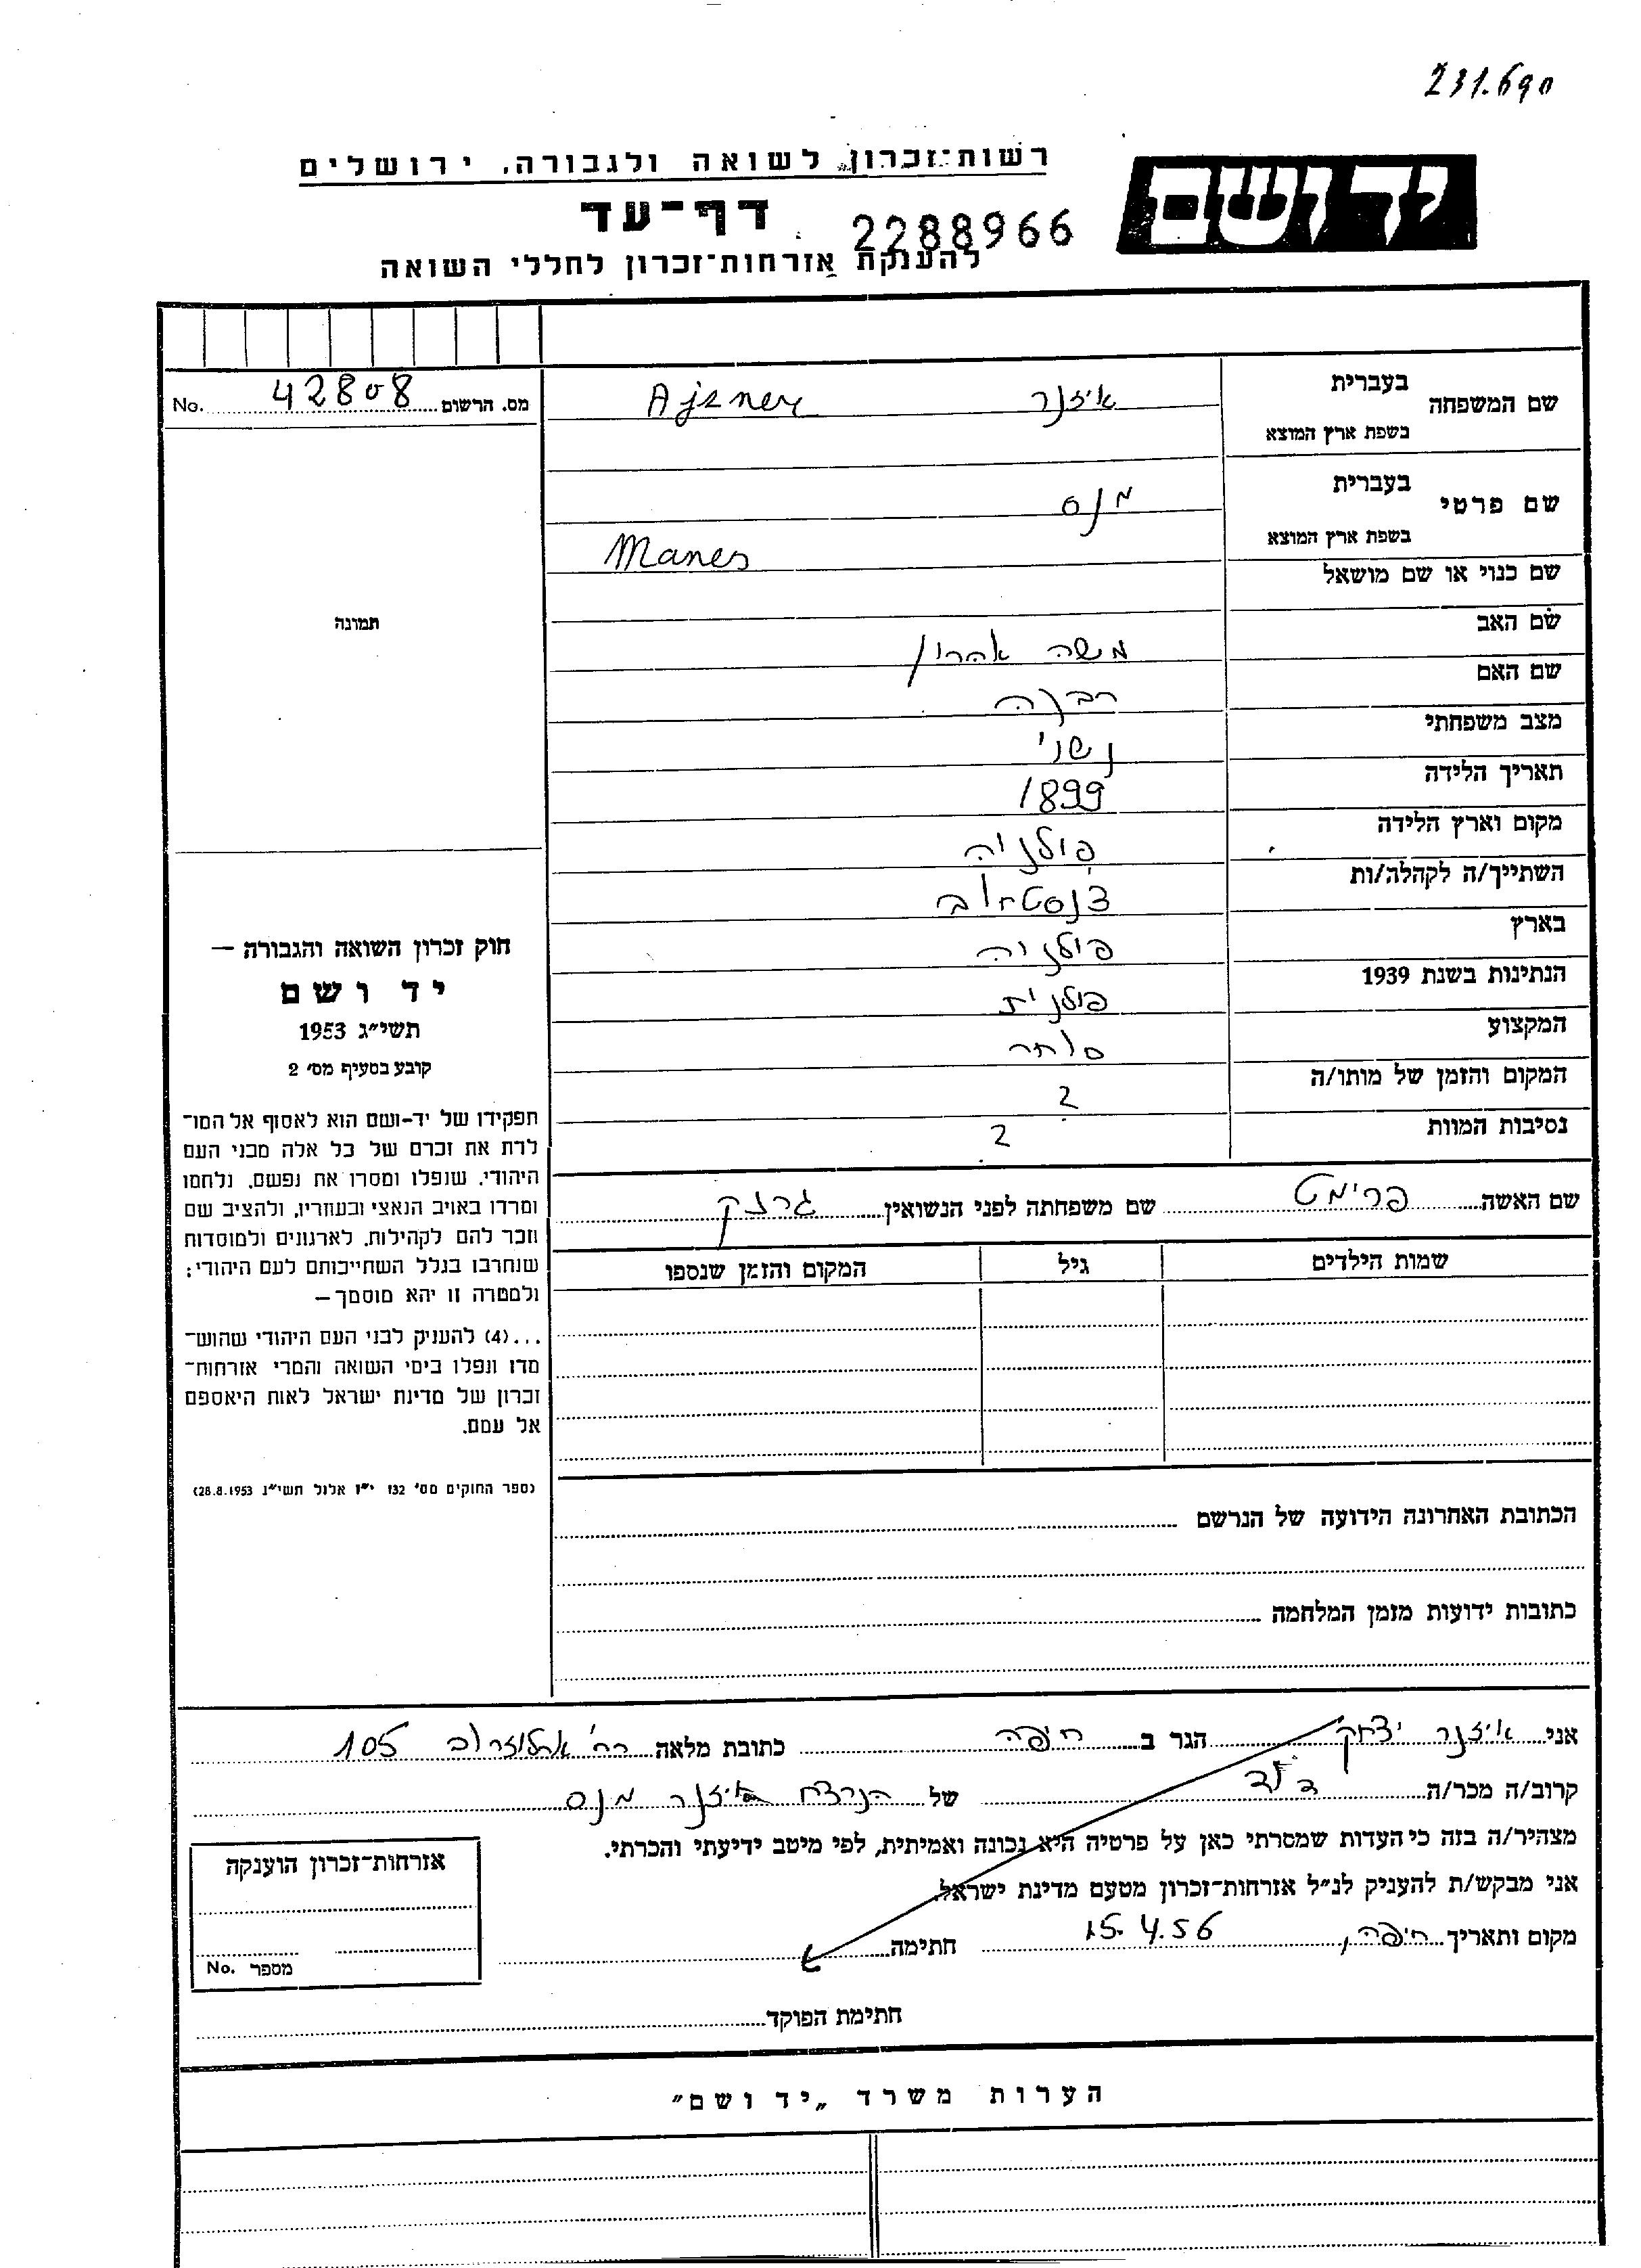 231.690
יד ושם
רשות־זכרון לשואה ולגבורה. ירושלים
דף־עד
2288966
להענקת אזרחות־זכרון לחללי השואה
מס. הרשום 42808 No.
שם המשפחה בעברית איזנר Ajzner
בשפת ארץ המוצא
שם פרטי בעברית מנס
בשפת ארץ המוצא Manes
שם כנוי או שם מושאל
שם האב משה אהרון
שם האם רבקה
מצב משפחתי נשוי
תאריך הלידה 1899
מקום וארץ הלידה פולניה
השתייך/ה לקהלה/ות צנסטחוב
בארץ פולניה
הנתינות בשנת 1939 פולנית
המקצוע סוחר
המקום והזמן של מותו/ה ?
נסיבות המוות ?
שם האשה פרימט שם משפחתה לפני הנשואין
שמות הילדים גיל המקום והזמן שנספו
הכתובת האחרונה הידועה של הנרשם
כתובות ידועות מזמן המלחמה
תמונה
חוק זכרון השואה והגבורה —
יד ושם
תשי״ג 1953
קובע בסעיף מס׳ 2
תפקידו של יד-ושם הוא לאסוף אל המו־
לדת את זכרם של כל אלה מבני העם
היהודי, שנפלו ומסרו את נפשם, נלחמו
ומרדו באויב הנאצי ובעוזריו, ולהציב שם
וזכר להם לקהילות, לארגונים ולמוסדות
שנחרבו בגלל השתייכותם לעם היהודי;
ולמטרה זו יהא מוסמך—
...(4) להעניק לבני העם היהודי שהוש־
מדו ונפלו בימי השואה והמרי אזרחות־
זכרון של מדינת ישראל לאות היאספם
אל עמם.
(ספר החוקים מס׳ 132 י״ז אלול תשי״ג 28.8.1953)
אני איזנר יצחק הגר ב חיפה כתובת מלאה רח׳ ארלוזרוב 105
קרוב/ה מכר/ה דוד של הנרצח איזנר מנס
מצהיר/ה בזה כי העדות שמסרתי כאן על פרטיה היא נכונה ואמיתית, לפי מיטב ידיעתי והכרתי.
אני מבקש/ת להעניק לנ״ל אזרחות־זכרון מטעם מדינת ישראל.
מקום ותאריך חיפה, 15.4.56 חתימה
חתימת הפוקד
אזרחות־זכרון הוענקה
מספר No.
הערות משרד „יד ושם״